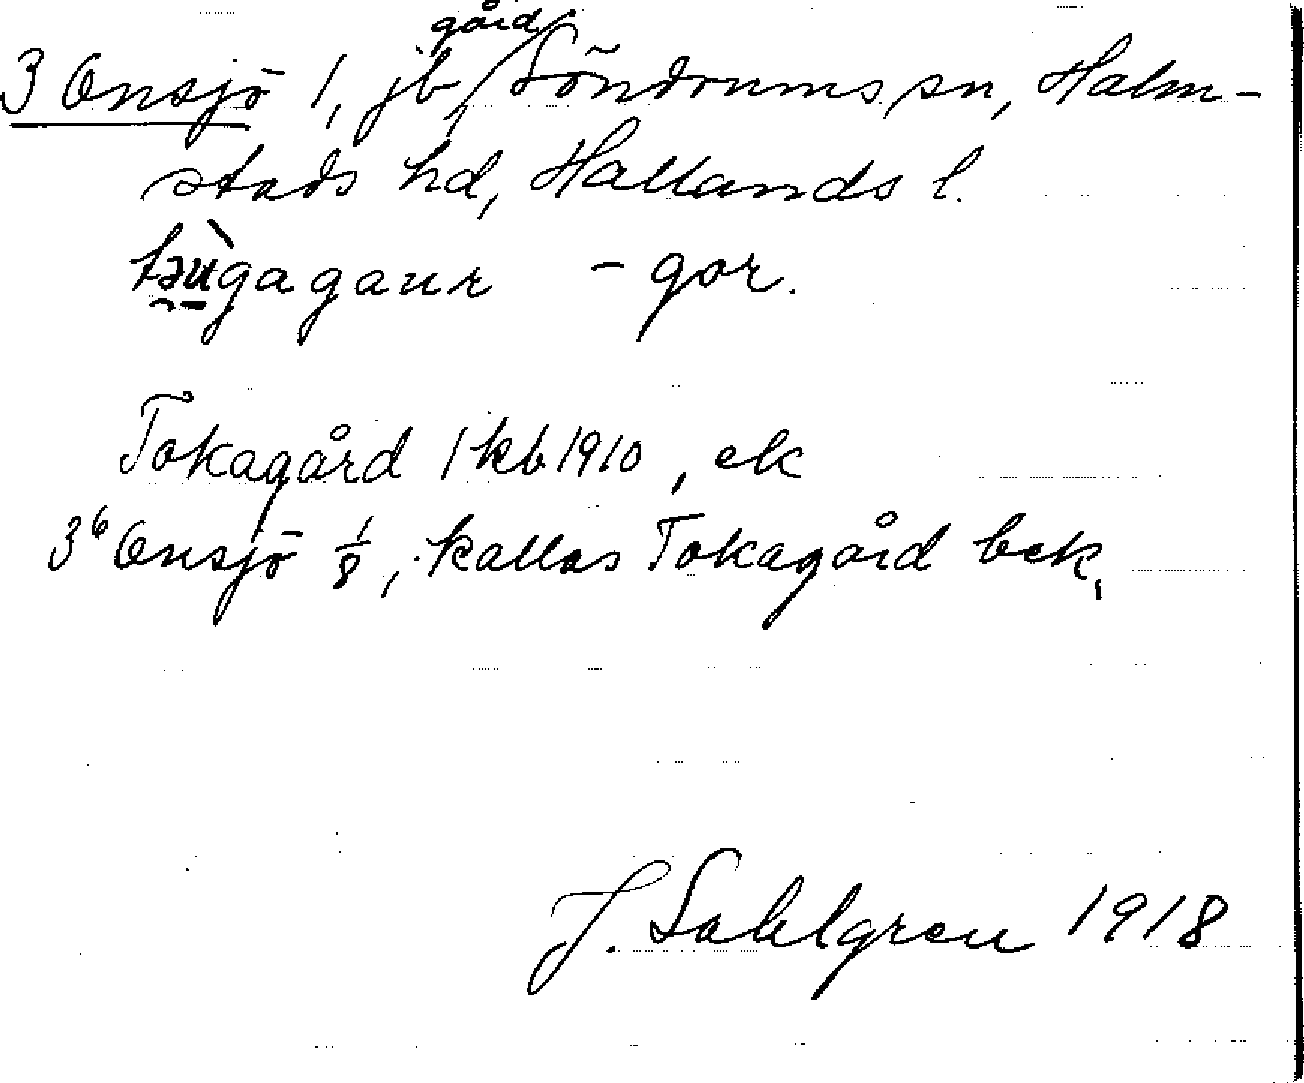 gård
3 Onsjö 1, jb, Söndrums sn, Halm-
stads hd, Hallands l.
tə̀ugagaur - gor.
Tokagård 1 kb 1910, ek
3⁶ Onsjö 1/8, kallas Tokagård bek.
J. Sahlgren 1918